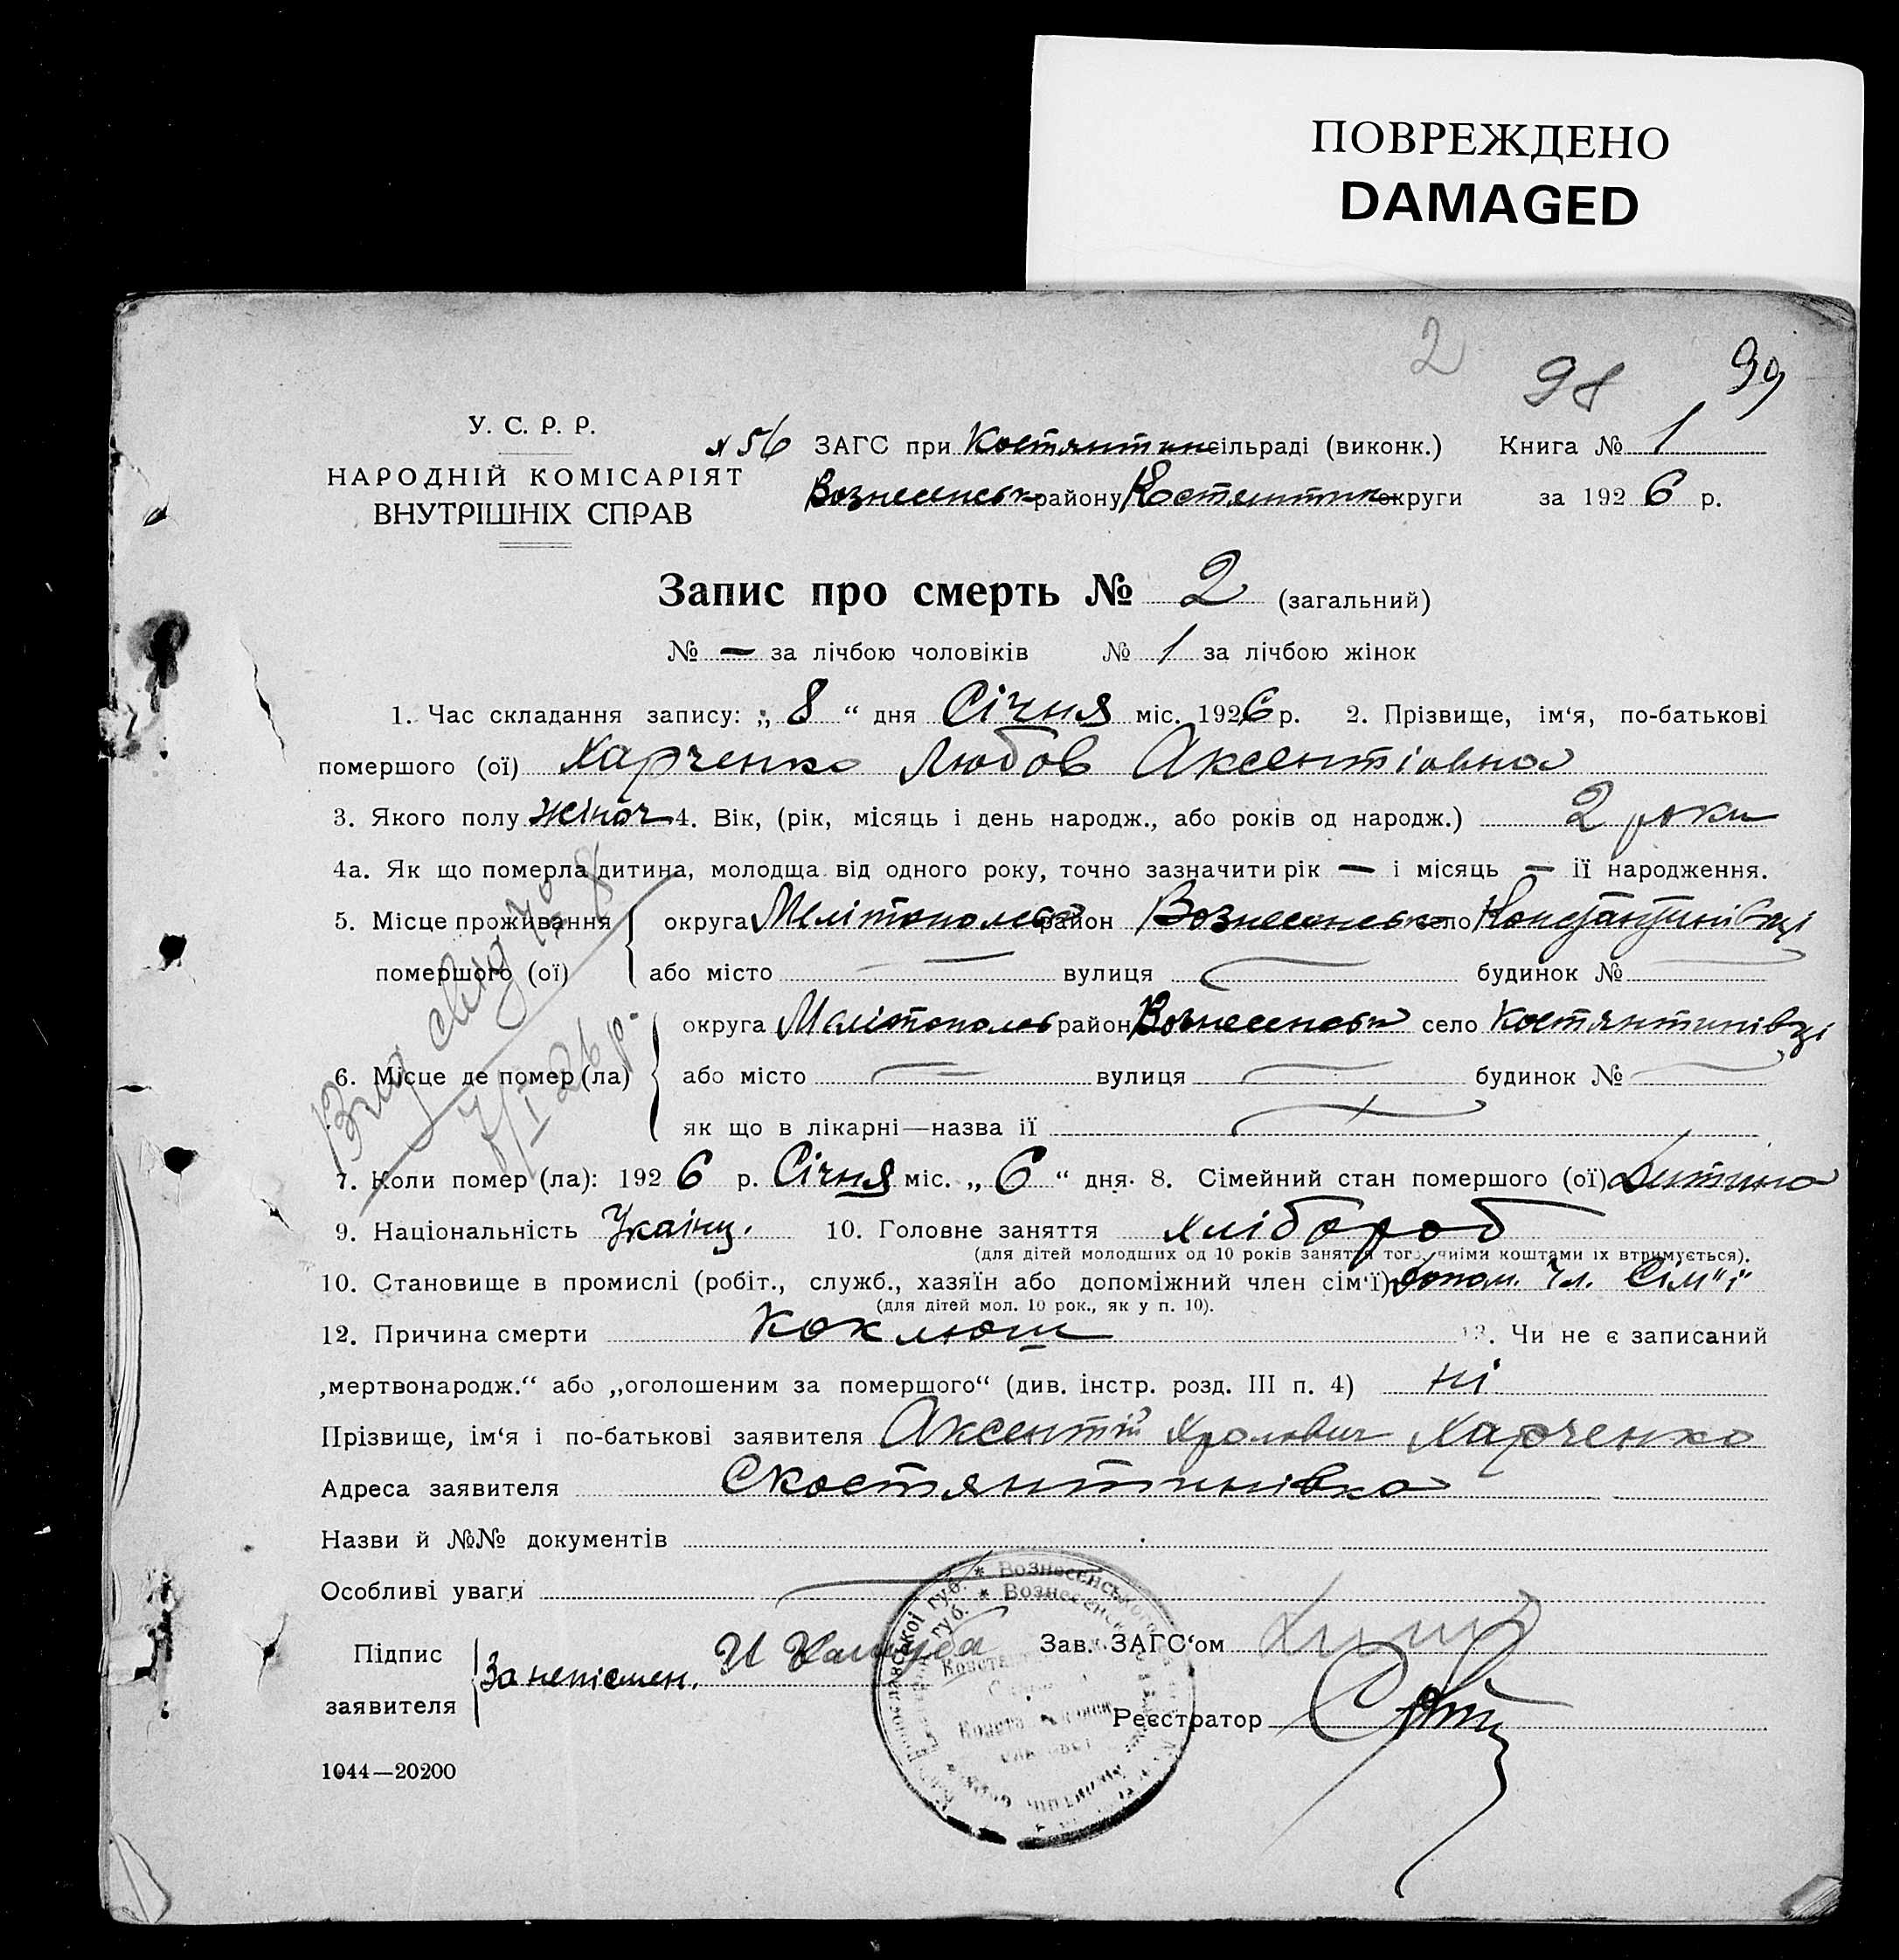 ПОВРЕЖДЕНО
DAMAGED
2 98 99
У. С. Р. Р.
НАРОДНІЙ КОМІСАРІЯТ
ВНУТРІШНІХ СПРАВ
№ 56 ЗАГС при Костянтин сільраді (виконк.) Книга № 1
Вознесенськ району округи за 1926 р.
Запис про смерть № 2 (загальний)
№ — за лічбою чоловіків № 1 за лічбою жінок
1. Час складання запису: „ 8 “ дня Січня міс. 1926 р. 2. Прізвище, ім‘я, по-батькові
помершого (ої) Харченко Любов Аксентіовна
3. Якого полу жіноч 4. Вік, (рік, місяць і день народж., або років од народж.) 2 роки
4а. Як що померла дитина, молодща від одного року, точно зазначити рік — і місяць — ії народження.
5. Місце проживання помершого (ої) округа Мелітопольск район Вознесенськ село Константинівці
або місто — вулиця — будинок № —
6. Місце де помер (ла) округа Мелітопольс район Вознесенськ село Костянтинівці
або місто — вулиця — будинок № —
як що в лікарні—назва ії
7. Коли помер (ла): 1926 р. Січня міс. „ 6 “ дня. 8. Сімейний стан помершого (ої) Дитина
9. Національність Украінц. 10. Головне заняття хлібороб
(для дітей молодших од 10 років заняття того, чиїми коштами їх втримується).
10. Становище в промислі (робіт., служб., хазяїн або допоміжний член сім‘ї) допом. чл. сім"і"
(для дітей мол. 10 рок., як у п. 10).
12. Причина смерти коклюш 13. Чи не є записаний
„мертвонародж.“ або „оголошеним за померщого“ (див. інстр. розд. III п. 4) ні
Прізвище, ім‘я і по-батькові заявителя Аксентій Харченко
Адреса заявителя С Костянтинівка
Назви й №№ документів
Особливі уваги
Підпис заявителя За неписмен. Зав. ЗАГС‘ом
Реєстратор
1044—20200